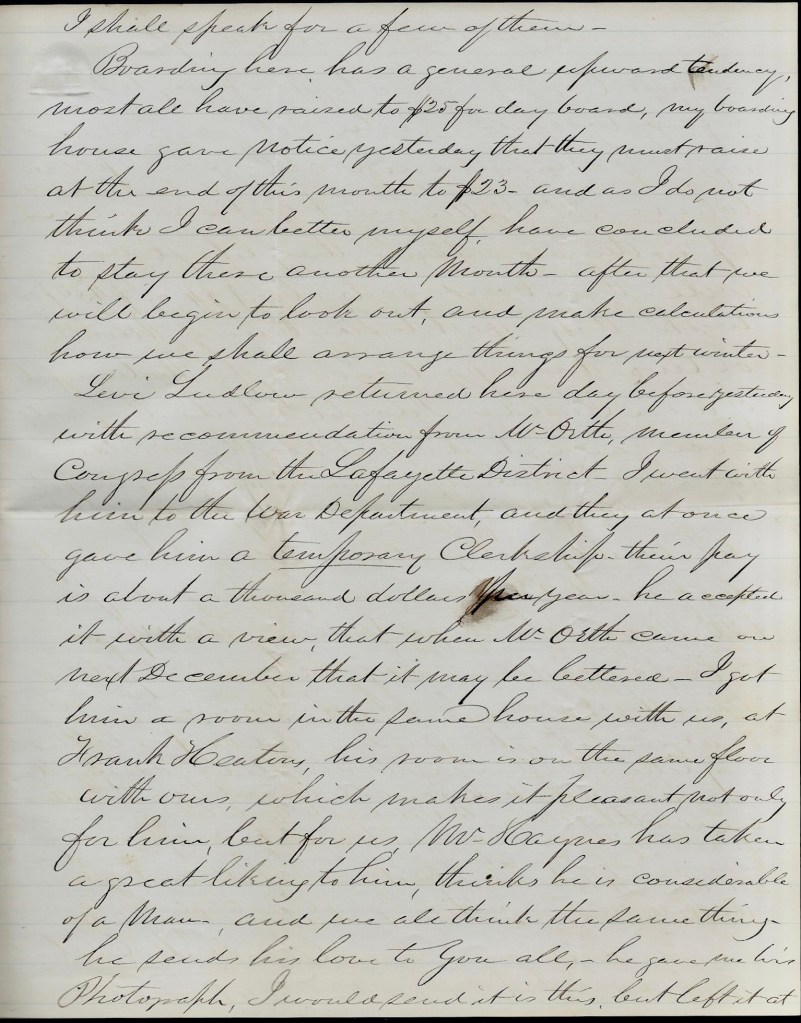 I shall speak for a few of them -
Boarding here, has a general upward tendency,
most all have raised to $25 for day board, my boarding
house gave notice yesterday that they must raise
at the end of this month to $23 - and as I do not
think I can better myself, have concluded
to stay there another Month - after that we
will begin to look out, and make calculations
how we shall arrange things for next winter -
Levi Ludlow returned here day before yesterday
with recommendation from Mr Orth, member of
Congress from the Lafayette District - I went with
him to the War Department, and they at once
gave him a temporary Clerkship - their pay
is about a thousand dollars per year - he accepted
it with a view, that when Mr Orth came on
next December that it may be bettered - I got
him a room in the same house with us, at
Frank Heatons, his room is on the same floor
with ours, which makes it pleasant, not only
for him, but for us, Mr Haynes has taken
a great liking to him, thinks he is considerable
of a Man -, and we all think the same thing -
he sends his love to You all, - he gave me his
Photograph, I would send it in this, but left it at